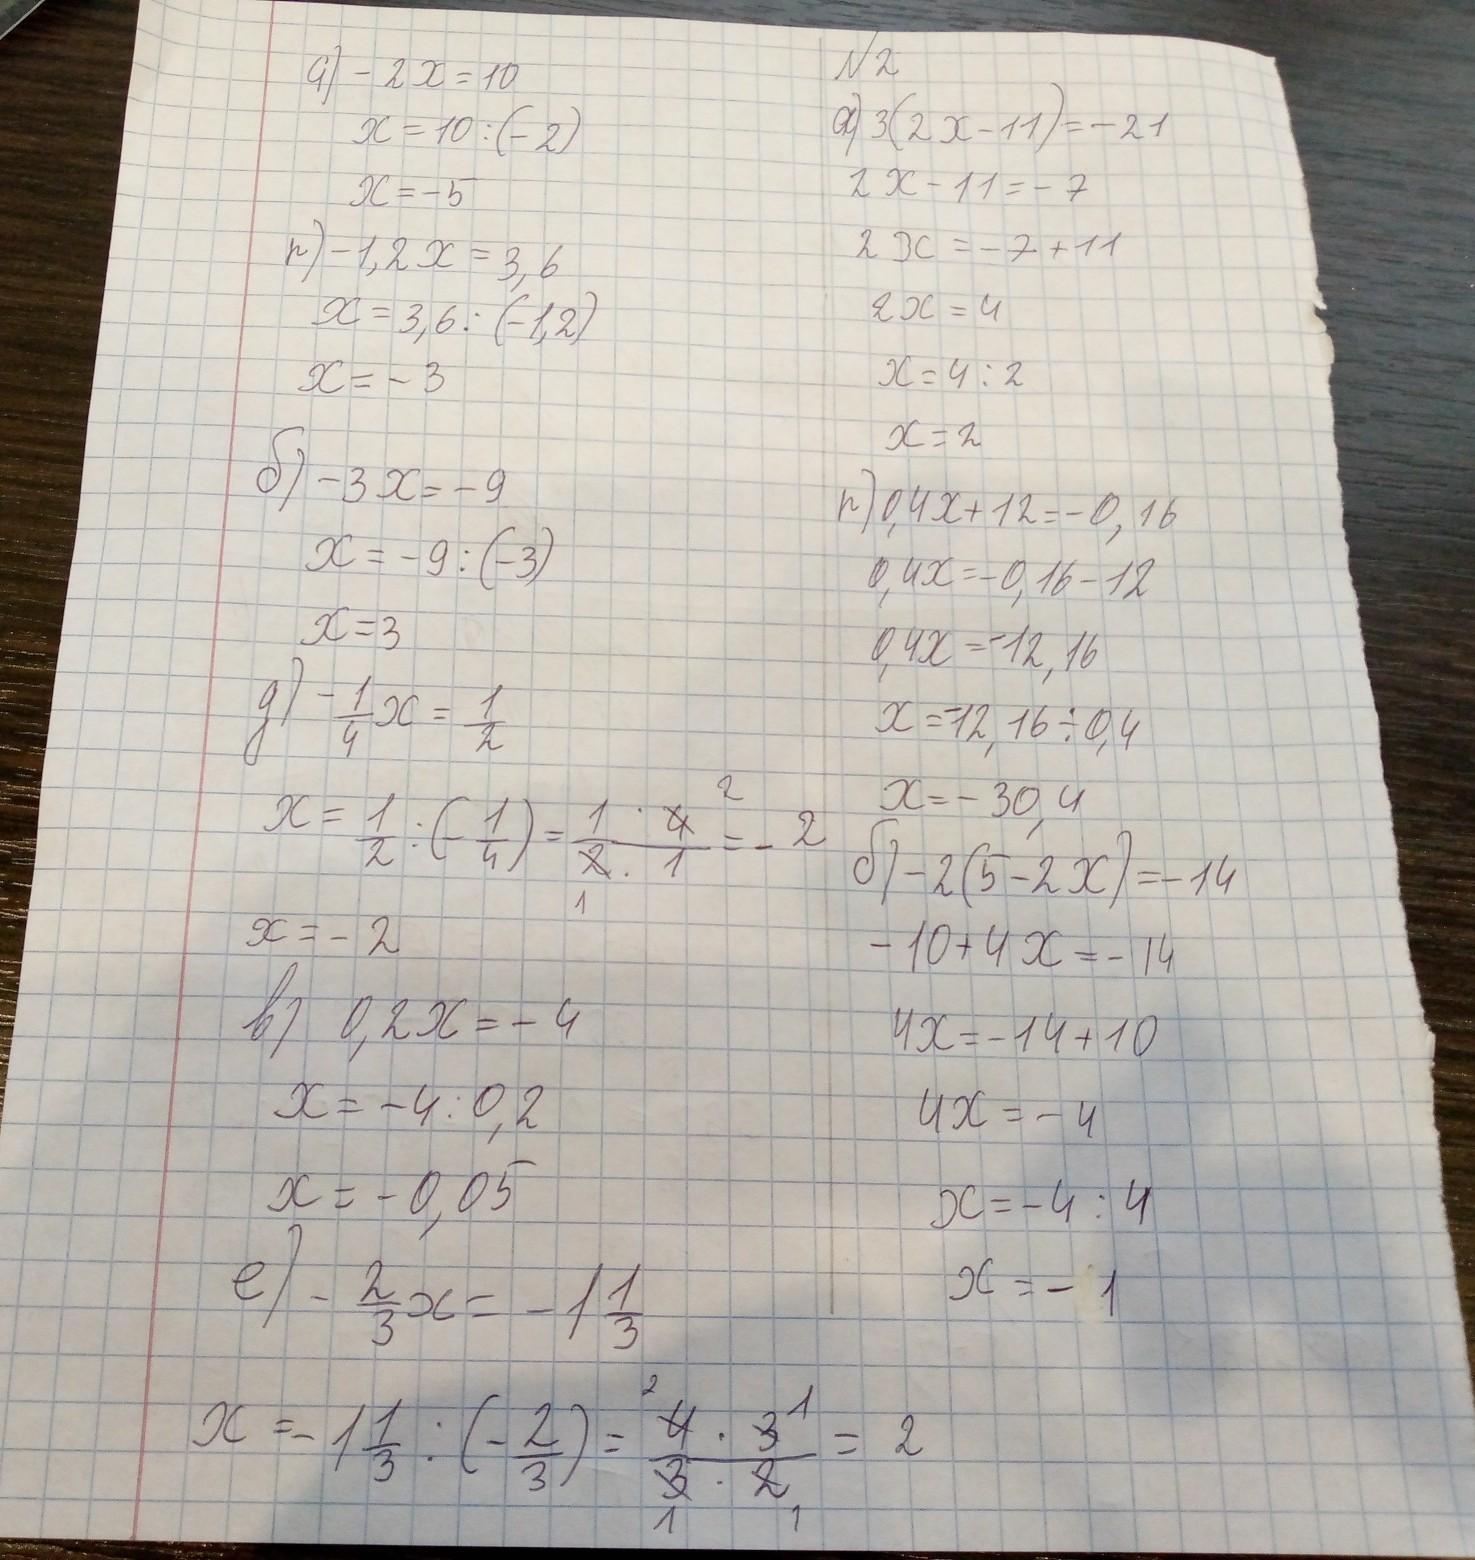 а) - 2x = 10
x = 10 : (-2)
x = -5
г) -1,2x = 3,6
x = 3,6 : (-1,2)
x = - 3
б) -3x = -9
x = -9 : (-3)
x = 3
д) -1/4 x = 1/2
x = 1/2 : (- 1/4) = 1 · 4 2 / 2 · 1 1 = - 2
x = - 2
в) 0,2x = - 4
x = -4 : 0,2
x = -0,05
е) - 2/3 x = -1 1/3
x = -1 1/3 : (- 2/3) = 2 4 · 3 1 / 3 · 2 1 1 = 2
N2
а) 3(2x - 11) = -21
2x - 11 = - 7
2x = -7 + 11
2x = 4
x = 4 : 2
x = 2
г) 0,4x + 12 = -0,16
0,4x = -0,16 - 12
0,4x = -12,16
x = -12,16 ÷ 0,4
x = -30,4
б) -2(5 - 2x) = -14
-10 + 4x = -14
4x = -14 + 10
4x = - 4
x = -4 : 4
x = - 1